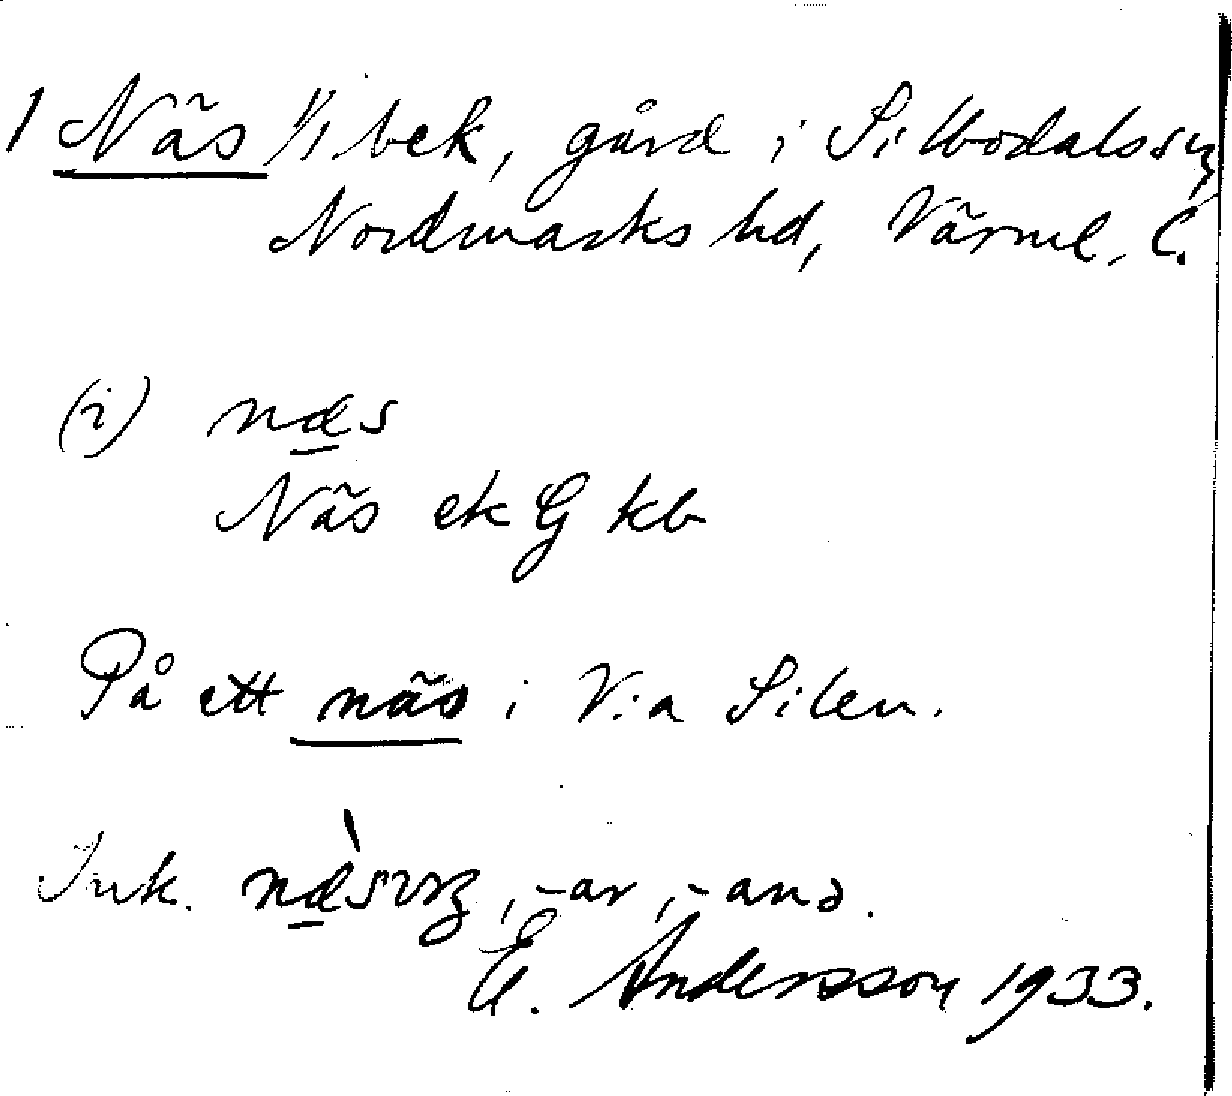 1 Näs 1/1 bek, gård i Silbodals sn,
Nordmarks hd, Värml. l.
(i) næs
Näs ek G kb
På ett näs i V:a Silen.
Ink. næ̀sıŋ, -ar, -ana.
E. Andersson 1933.